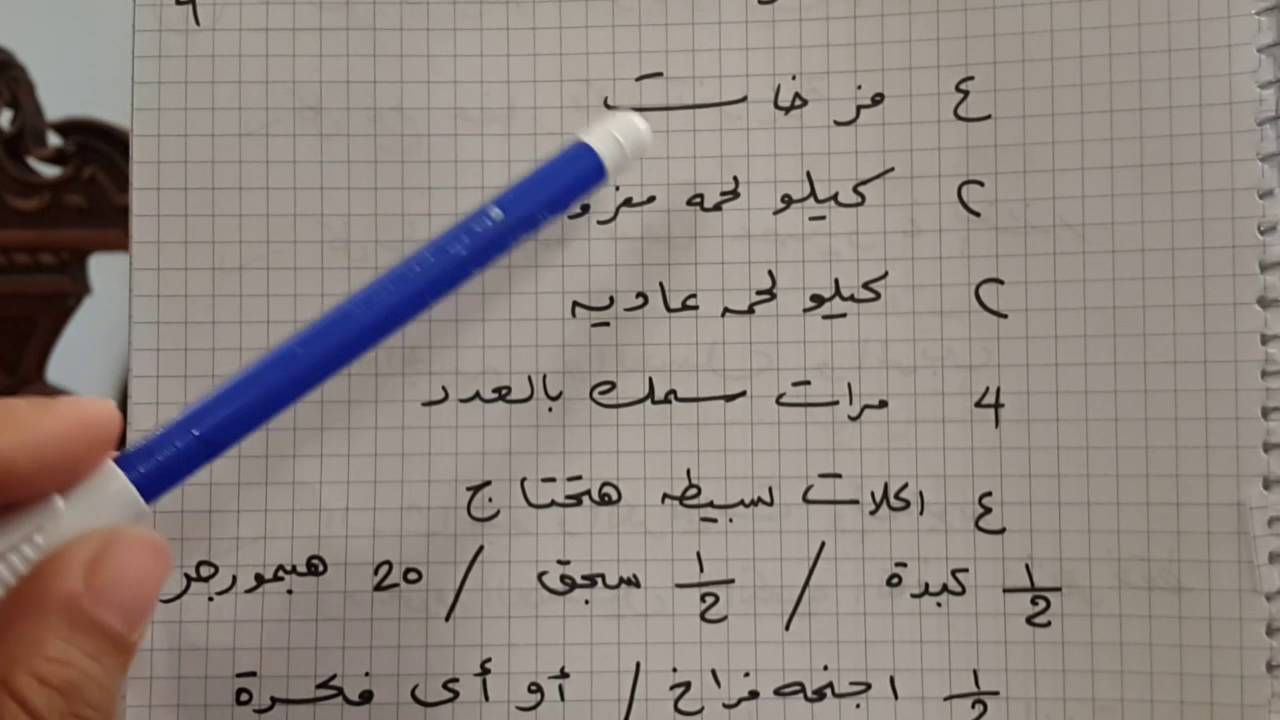 ٤ فرخات
٢ كيلو لحمه
٢ كيلو لحمه عاديه
4 مرات سمك بالعدد
٤ اكلات بسيطه هتحتاج
١/2 كبدة / ١/2 سجق / 20 هيمورجر
١/2 اجنحه فراخ / أو أى فكرة